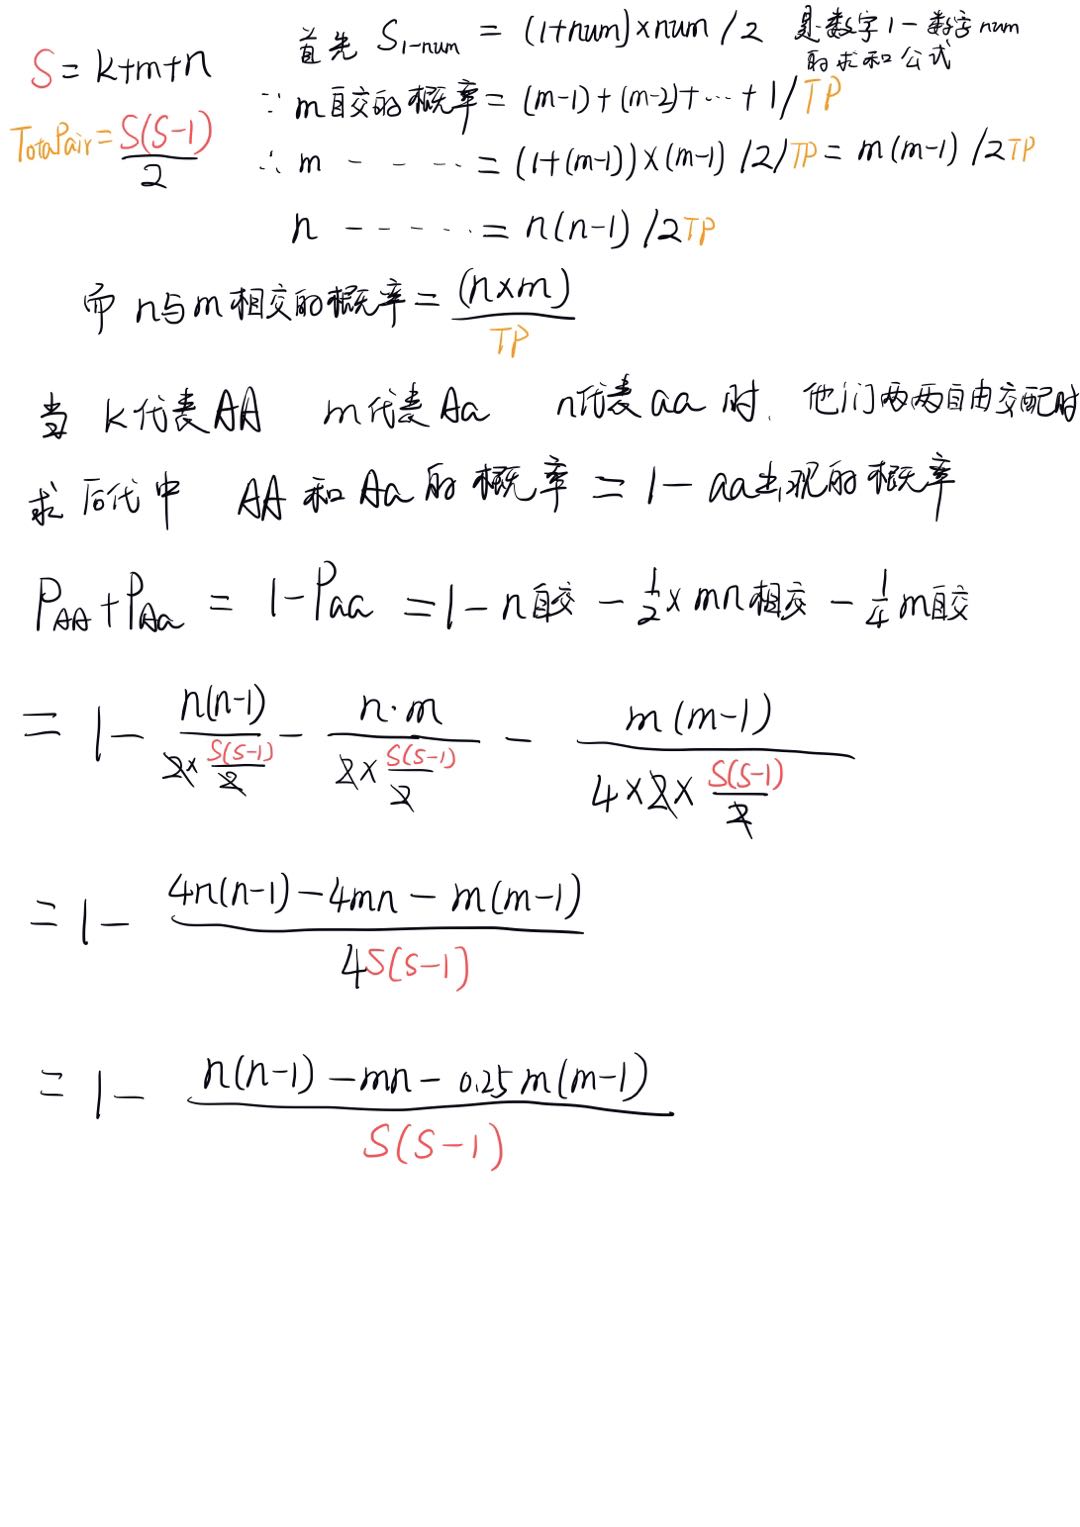 首先 S₁₋num = (1+num)×num/2 是数字1-数字num
的求和公式
S = k+m+n
∵ m自交的概率 = (m-1)+(m-2)+…+1/TP
TotalPair = S(S-1)/2
∴ m - - - - = (1+(m-1))×(m-1)/2/TP = m(m-1)/2TP
n - - - - - = n(n-1)/2TP
而 n与m相交的概率 = (n×m)/TP
当 k代表AA m代表Aa n代表aa时. 他们两两自由交配时
求后代中 AA和Aa的概率 = 1-aa出现的概率
P_AA+P_Aa = 1-P_aa = 1-n自交 - 1/2×mn相交 - 1/4 m自交
= 1 - n(n-1)/(2×S(S-1)/2) - n·m/(2×S(S-1)/2) - m(m-1)/(4×2×S(S-1)/2)
= 1 - (4n(n-1)-4mn-m(m-1))/(4S(S-1))
= 1 - (n(n-1)-mn-0.25m(m-1))/(S(S-1))